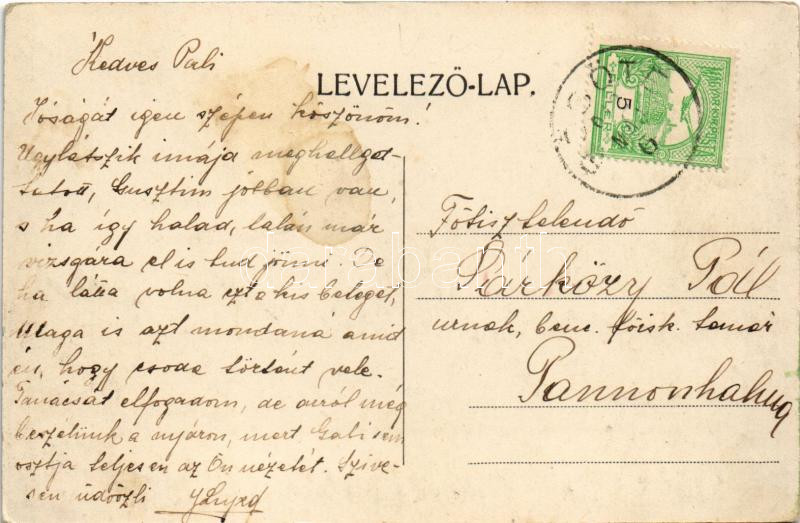 Kedves Pali
LEVELEZŐ-LAP.
Jóságát igen szépen köszönöm!
Úgylátszik imája meghallgat-
tatott, Gusztim jobban van,
s ha így halad, talán már
vizsgára el is tud jönni. De
ha látta volna ezt a kis beteget,
Maga is azt mondaná amid
én, hogy csoda történt vele.
Tanácsát elfogadom, de erről még
beszélünk a nyáron, mert Gabi sem
osztja teljesen az Ön nézetét. Szíve-
sen üdvözli
Főtisztelendő
Sárközy Pál
urnak, benc. főisk. tanár
Pannonhalma
darabanth